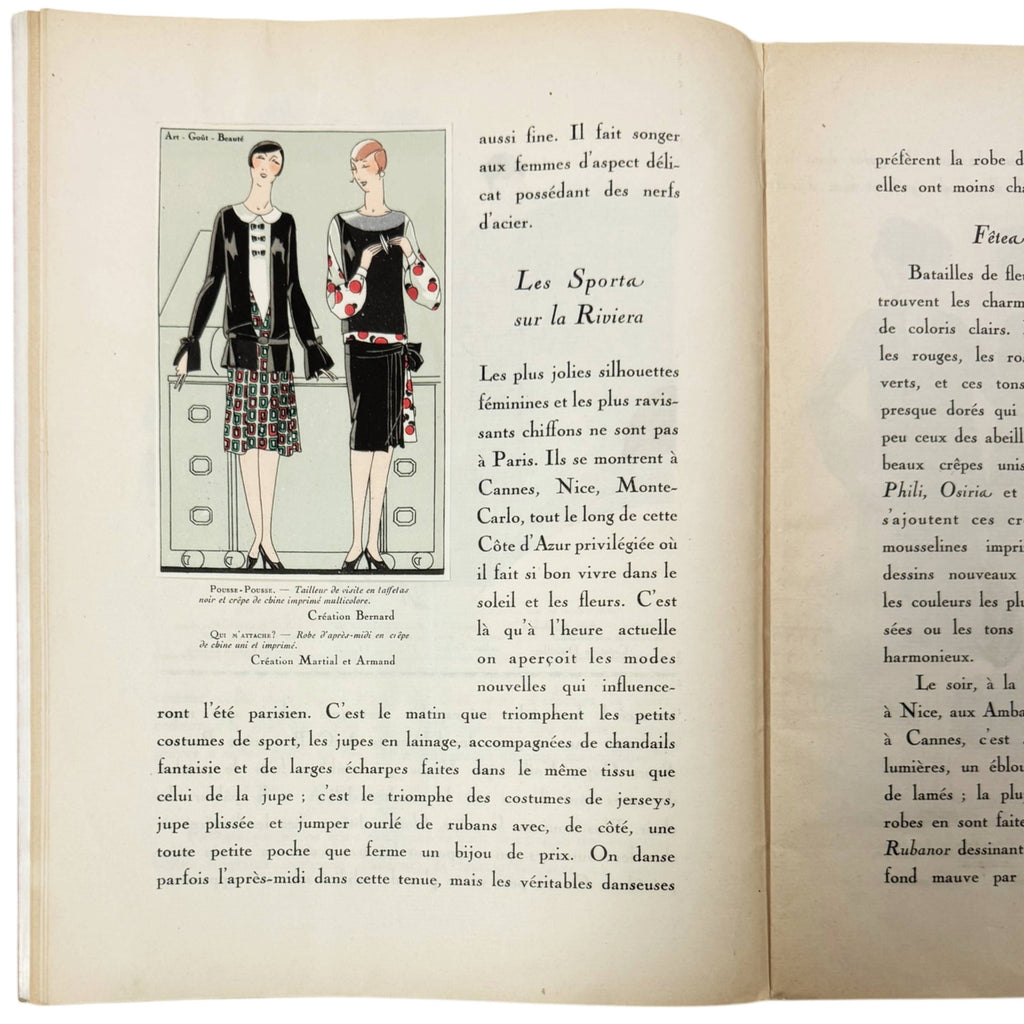 Art - Goût - Beauté
POUSSE-POUSSE. — Tailleur de visite en taffetas
noir et crêpe de chine imprimé multicolore.
Création Bernard
QUI M'ATTACHE? — Robe d'après-midi en crêpe
de chine uni et imprimé.
Création Martial et Armand
aussi fine. Il fait songer
aux femmes d'aspect déli-
cat possédant des nerfs
d'acier.
Les Sports
sur la Riviera
Les plus jolies silhouettes
féminines et les plus ravis-
sants chiffons ne sont pas
à Paris. Ils se montrent à
Cannes, Nice, Monte-
Carlo, tout le long de cette
Côte d'Azur privilégiée où
il fait si bon vivre dans le
soleil et les fleurs. C'est
là qu'à l'heure actuelle
on aperçoit les modes
nouvelles qui influence-
ront l'été parisien. C'est le matin que triomphent les petits
costumes de sport, les jupes en lainage, accompagnées de chandails
fantaisie et de larges écharpes faites dans le même tissu que
celui de la jupe ; c'est le triomphe des costumes de jerseys,
jupe plissée et jumper ourlé de rubans avec, de côté, une
toute petite poche que ferme un bijou de prix. On danse
parfois l'après-midi dans cette tenue, mais les véritables danseuses
préfèrent la robe d
elles ont moins cha
Fêtes
Batailles de fle
trouvent les charm
de coloris clairs.
les rouges, les ro
verts, et ces tons
presque dorés qui
peu ceux des abeill
beaux crêpes unis
Phili, Osiris et
s'ajoutent ces cr
mousselines impri
dessins nouveaux
les couleurs les plu
sées ou les tons
harmonieux.
Le soir, à la
à Nice, aux Amba
à Cannes, c'est
lumières, un éblou
de lamés ; la plu
robes en sont faite
Rubanor dessinant
fond mauve par